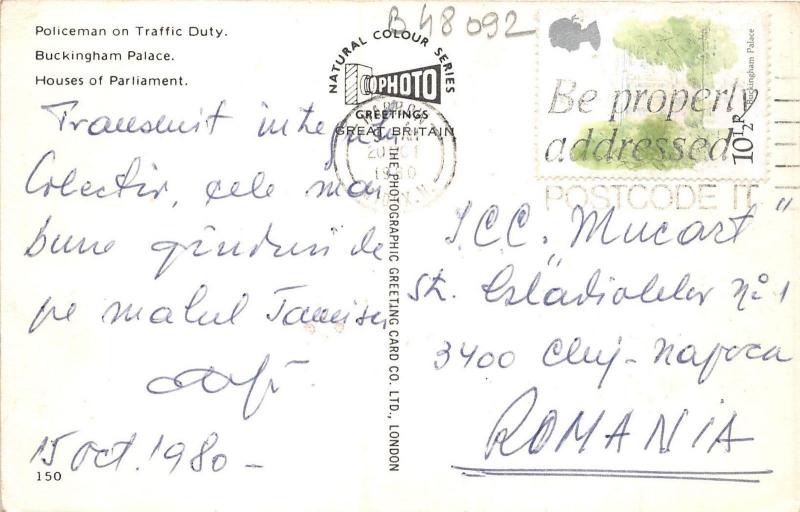 Policeman on Traffic Duty.
Buckingham Palace.
Houses of Parliament.
B48092
NATURAL COLOUR SERIES
PHOTO
GREETINGS
GREAT BRITAIN
THE PHOTOGRAPHIC GREETING CARD CO. LTD., LONDON
Buckingham Palace
10½P
Be properly
addressed
POSTCODE IT
Transmit întregului
Colectiv, cele mai
bune gînduri de
pe malul Tamisei
15 oct. 1980 -
150
I.C.C. "Mucart"
Str. Stadioalelor No 1
3400 Cluj-Napoca
ROMANIA